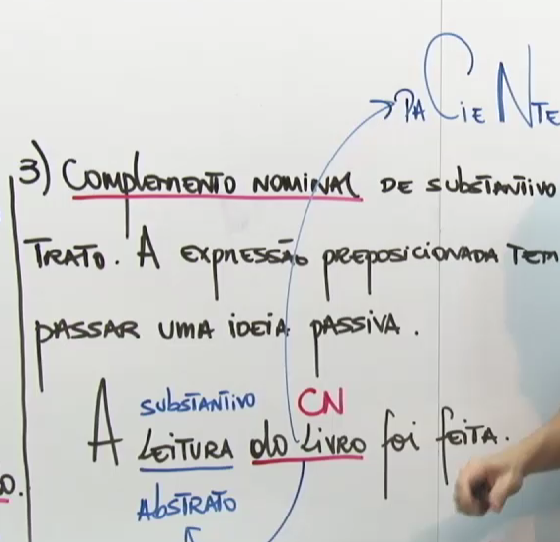 PACIENTE
3) COMPLEMENTO NOMINAL DE SUBSTANTIVO
TRATO. A EXPRESSÃO PREPOSICIONADA TEM
PASSAR UMA IDEIA PASSIVA.
SUBSTANTIVO CN
A LEITURA do LIVRO foi fEITA.
O.
AbSTRATO